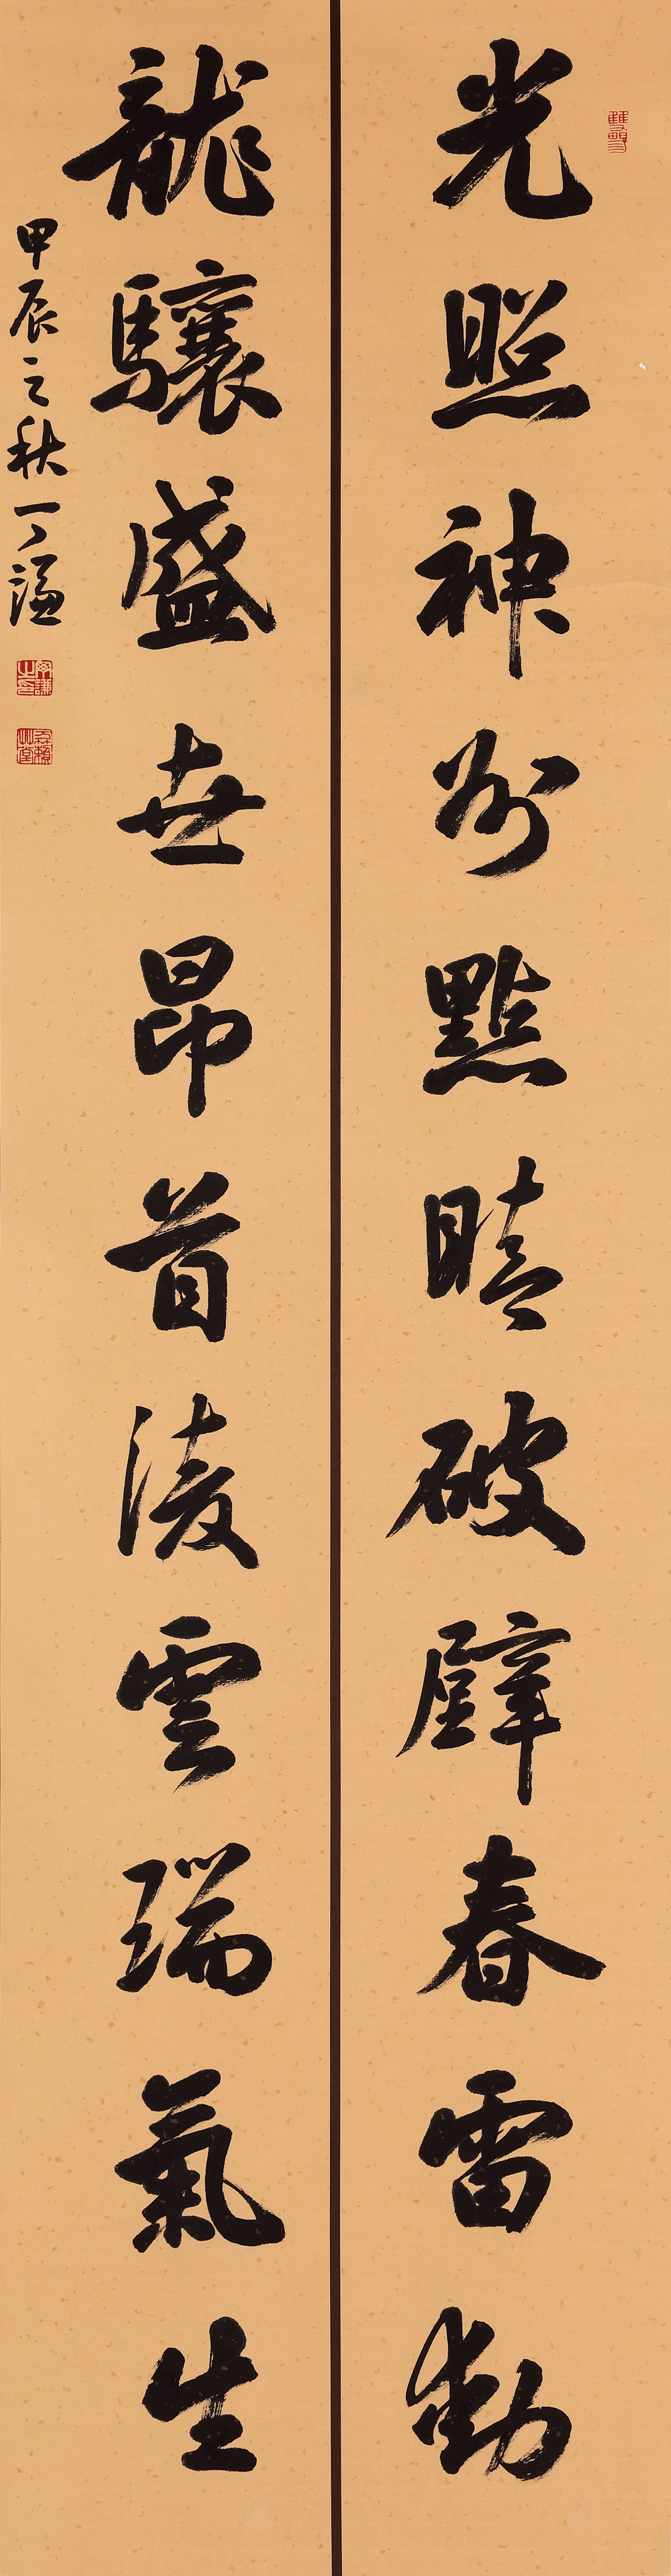 光照神州點睛破壁春雷動
龍驤盛世昂首淩雲瑞氣生
甲辰之秋丁謙